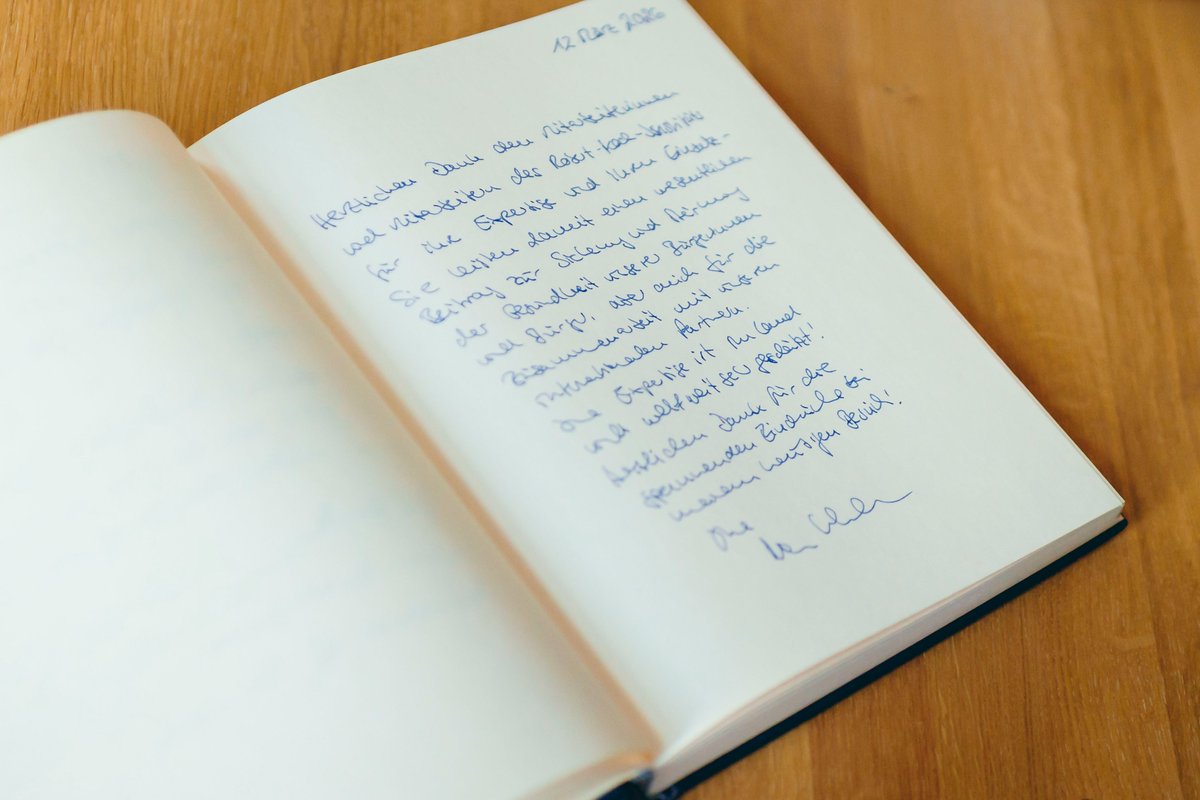 12 März 2026
Herzlichen Dank den Mitarbeiterinnen
und Mitarbeitern des Robert-Koch-Instituts
für Ihre Expertise und Ihren Einsatz.
Sie leisten damit einen wesentlichen
Beitrag zur Sicherung und Stärkung
der Gesundheit unserer Bürgerinnen
und Bürger, aber auch für die
Zusammenarbeit mit unseren
internationalen Partnern.
Ihre Expertise ist im Land
und weltweit sehr geschätzt!
Herzlichen Dank für die
spannenden Eindrücke bei
meinem heutigen Besuch!
Ihre